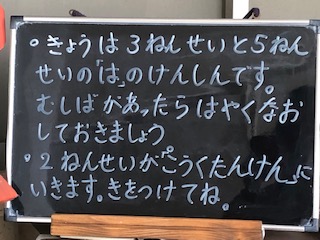 。きょうは3ねんせいと5ねん
せいの「は」のけんしんです。
むしばがあったらはやくなお
しておきましょう。
。2ねんせいが「こうくたんけん」に
いきます。きをつけてね。